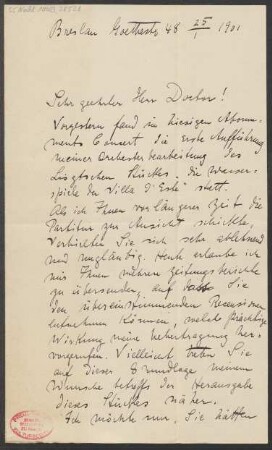 Breslau Goethestr 48 25 1901
Sehr geehrter Herr Doctor!
Vorgestern fand im hiesigen Abonne-
ments Concert die erste Aufführung
meiner Orchesterbearbeitung des
Lisztschen Stückes „Die Wasser-
spiele der Villa d'Este" statt.
Als ich Ihnen vor längerer Zeit die
Partitur zur Ansicht schickte,
verhielten Sie sich sehr ablehnend
und ungläubig. Heute erlaube ich
mir Ihnen mehrere Zeitungsberichte
zu übersenden, auf dass Sie
den übereinstimmenden Recensionen
entnehmen können, welch prächtige
Wirkung meine Uebertragung her-
vorgerufen. Vielleicht treten Sie
auf dieser Grundlage meinem
Wunsche betreffs der Herausgabe
dieses Stückes näher.
Ich möchte nur, Sie hätten